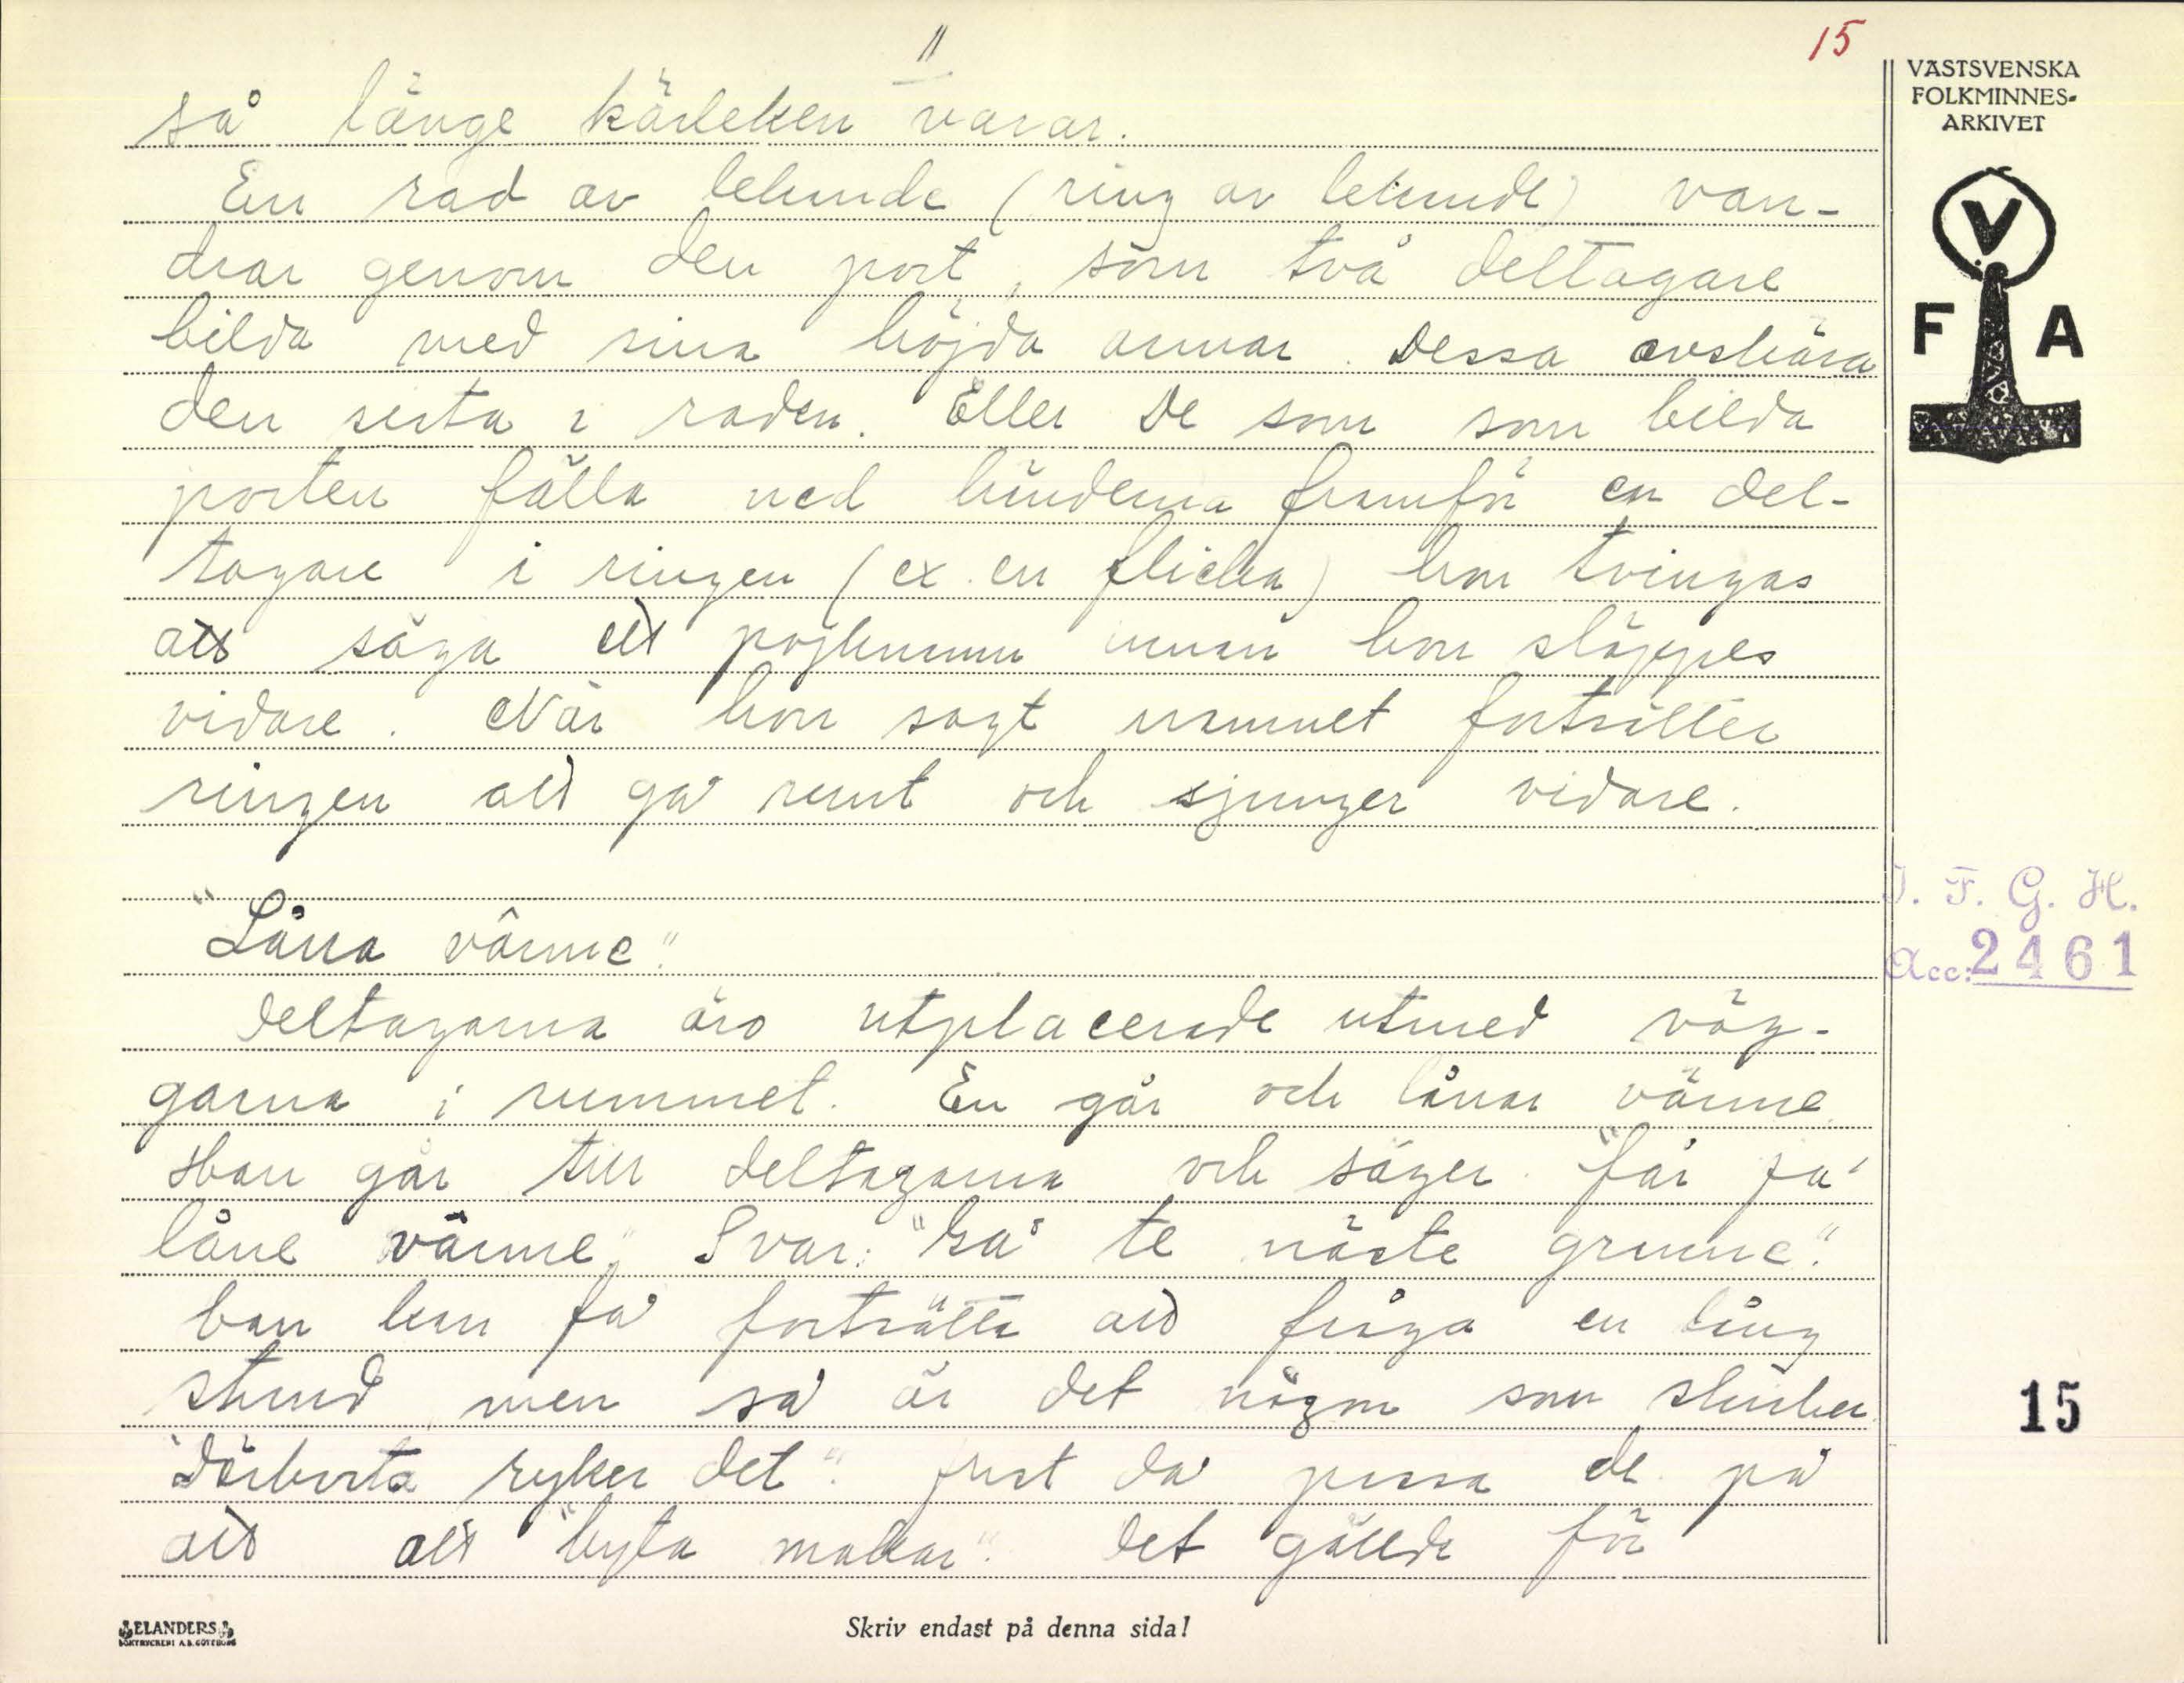 11
15
så länge kärleken varar.
En rad av lekande (ring av lekande) van-
drar genom den port, som två deltagare
bilda med sina höjda armar. Dessa avskära
den sista i raden. Eller De som som bilda
porten fälla ned händerna framför en del-
tagare i ringen (ex. en flicka) hon tvingas
att säga ett pojknamn innan hon släppes
vidare. När hon sagt namnet fortsätter
ringen att gå runt och sjunger vidare.
"Låna värme".
Deltagarna äro utplacerade utmed väg-
garna i rummet. En går och lånar värme.
Han går till deltagarna och säger. "får ja'
låne värme" Svar: "Gå te näste granne".
han kan få fortsätta att fråga en lång
stund men så är det någon som skriker
"Därborta ryker det". Just då passa de på
att att "byta makar". Det gällde för
VÄSTSVENSKA
FOLKMINNES-
ARKIVET
V
F A
I. F. G. H.
Acc: 2461
15
ELANDERS
BOKTRYCKERI A.B. GÖTEBORG
Skriv endast på denna sida!